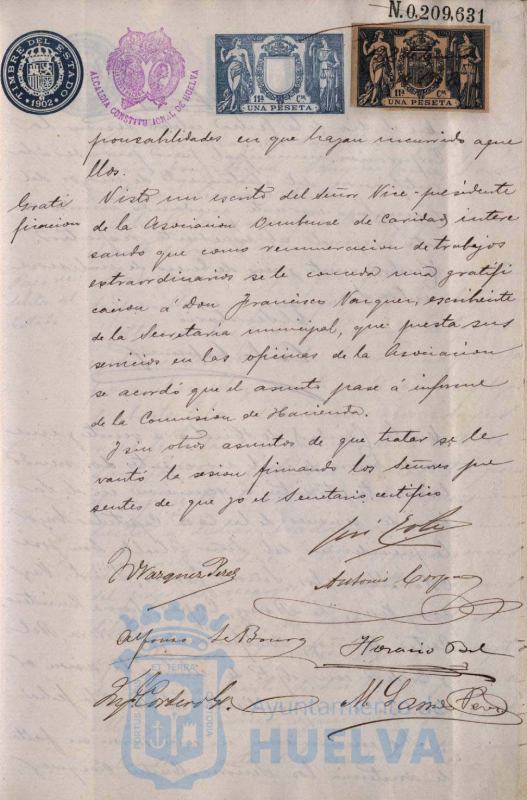 N.0,209,631
TIMBRE DEL ESTADO
1902
ALCALDIA CONSTITUCIONAL DE HUELVA
11ª Cª
UNA PESETA
11ª Cª
UNA PESETA
ponsabilidades en que hayan incurrido aque
llos.
Grati
ficacion
Visto un escrito del señor Vice-presidente
de la Asociacion Onubense de Caridad, intere
sando que como remuneracion de trabajos
extraordinarios se le conceda una gratifi
cacion á Don Francisco Vazquez, escribiente
de la Secretaría municipal, que presta sus
servicios en las oficinas de la Asociacion
se acordó que el asunto pase á informe
de la Comision de Hacienda.
Y sin otros asuntos de que tratar se le
vantó la sesion firmando los Señores pre
sentes de que yo el Secretario certifico
Vazquez Perez
Antonio
Alfonso Le Bourg
Horacio Bel
Cordero
M. Garcia Perez
ET TERRA
PORTUS
CUSTODIA
Ayuntamiento de
HUELVA